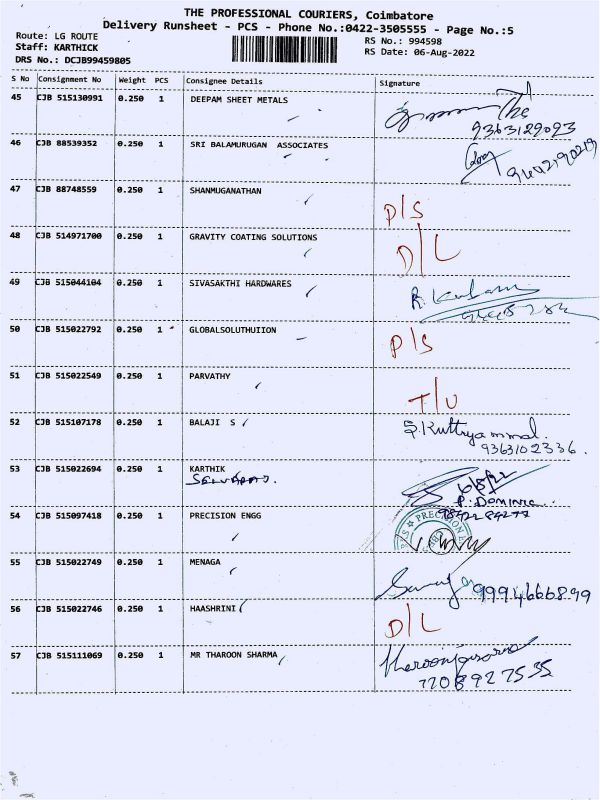 THE PROFESSIONAL COURIERS, Coimbatore
Delivery Runsheet - PCS - Phone No.:0422-3505555 - Page No.:5
Route: LG ROUTE
Staff: KARTHICK
DRS No.: DCJB99459805
RS No.: 994598
RS Date: 06-Aug-2022
S No Consignment No Weight PCS Consignee Details Signature
45 CJB 515130991 0.250 1 DEEPAM SHEET METALS
9363129093
46 CJB 88539352 0.250 1 SRI BALAMURUGAN ASSOCIATES
47 CJB 88748559 0.250 1 SHANMUGANATHAN
P/S
48 CJB 514971700 0.250 1 GRAVITY COATING SOLUTIONS
D/L
49 CJB 515044104 0.250 1 SIVASAKTHI HARDWARES
50 CJB 515022792 0.250 1 GLOBALSOLUTHUIION
P/S
51 CJB 515022549 0.250 1 PARVATHY
T/U
52 CJB 515107178 0.250 1 BALAJI S
S.Kuttryammal.
9363102336.
53 CJB 515022694 0.250 1 KARTHIK
6/8/22
P. DOMINIC
54 CJB 515097418 0.250 1 PRECISION ENGG
PRECISION
55 CJB 515022749 0.250 1 MENAGA
9994666899
56 CJB 515022746 0.250 1 HAASHRINI
D/L
57 CJB 515111069 0.250 1 MR THAROON SHARMA
7208927535